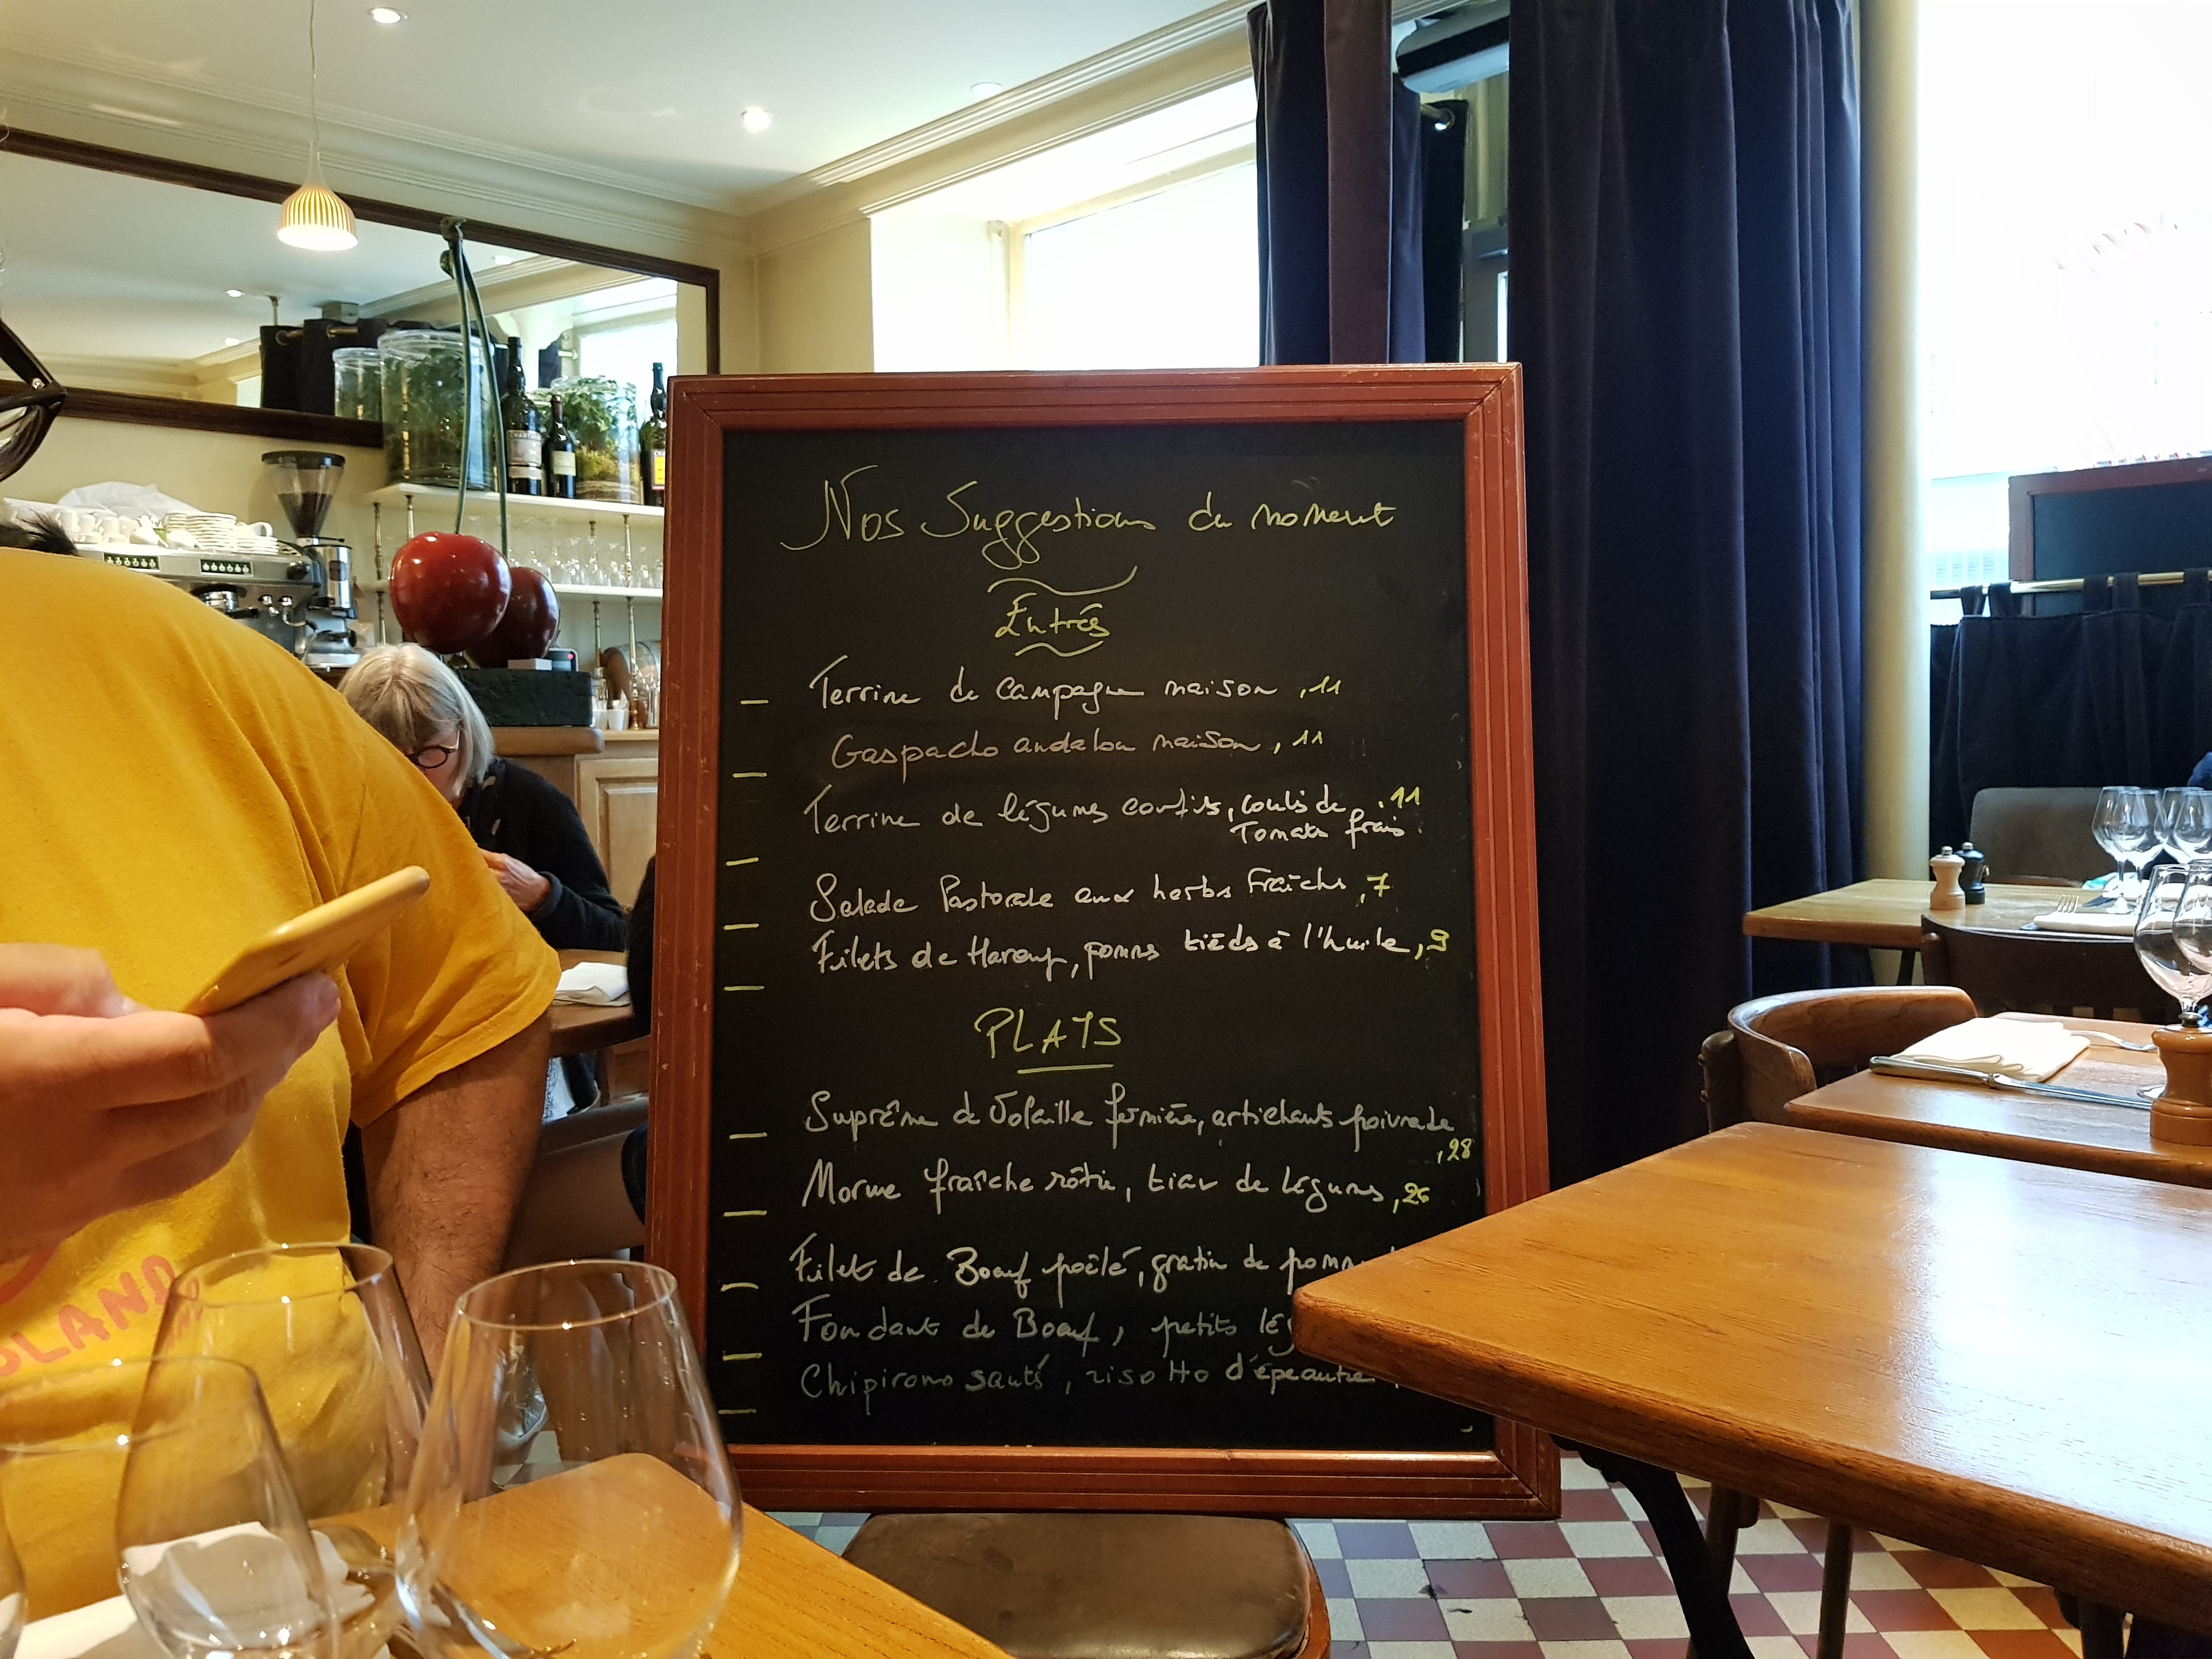 Nos Suggestions du moment
Entrés
Terrine de campagne maison ,11
Gaspacho andalou maison, 11
Terrine de légumes confits, coulis de ,11
Tomates frais
Salade Pastorale aux herbs Fraîchs ,7
Filets de Hareng, pomms tièds à l'huile, 9
PLATS
Suprême de Volaille fermière, artichauts poivrade
,28
Morue fraîche rôtie, tian de légums, 26
Filet de Boeuf poêlé, gratin de pomm
Fondant de Boeuf, petits lég
Chipirons sauté, risotto d'épeautre
LAND